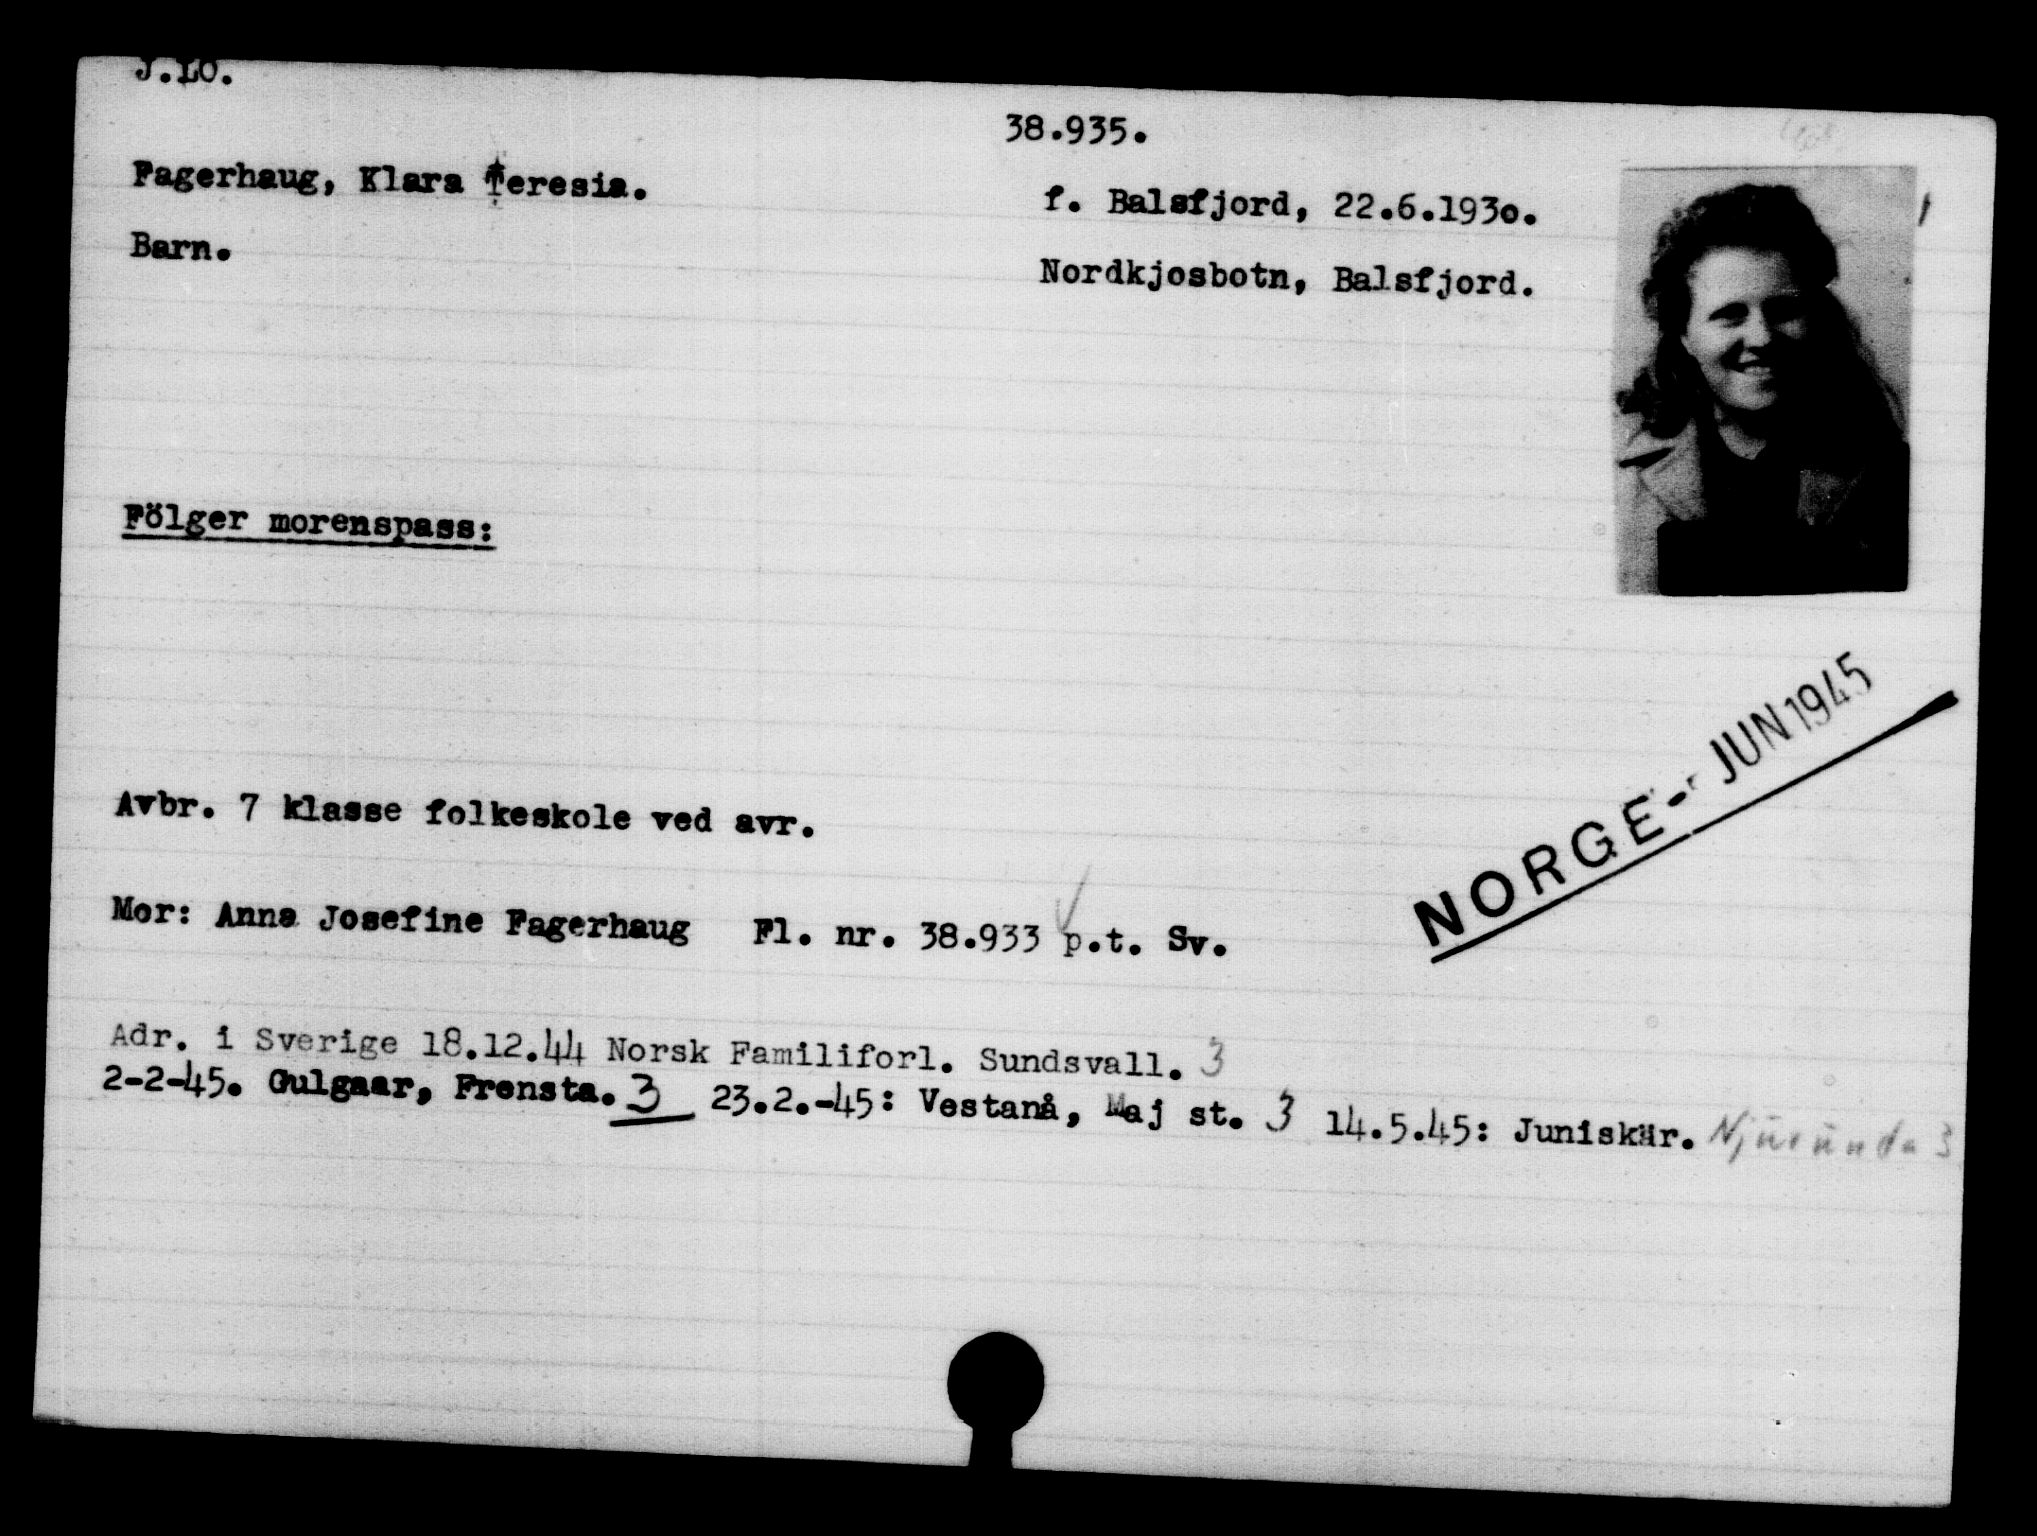 J.LO.
38.935.
Fagerhaug, Klara Teresia.
f. Balsfjord, 22.6.1930.
Barn.
Nordkjosbotn, Balsfjord.
Fölger morenspass:
NORGE - JUN 1945
Avbr. 7 klasse folkeskole ved avr.
Mor: Anna Josefine Fagerhaug Fl. nr. 38.933 p.t. Sv.
Adr. i Sverige 18.12.44 Norsk Familiforl. Sundsvall. 3
2-2-45. Gulgaar, Frensta. 3 23.2.-45: Vestanå, Maj st. 3 14.5.45: Juniskär. Njurunda 3